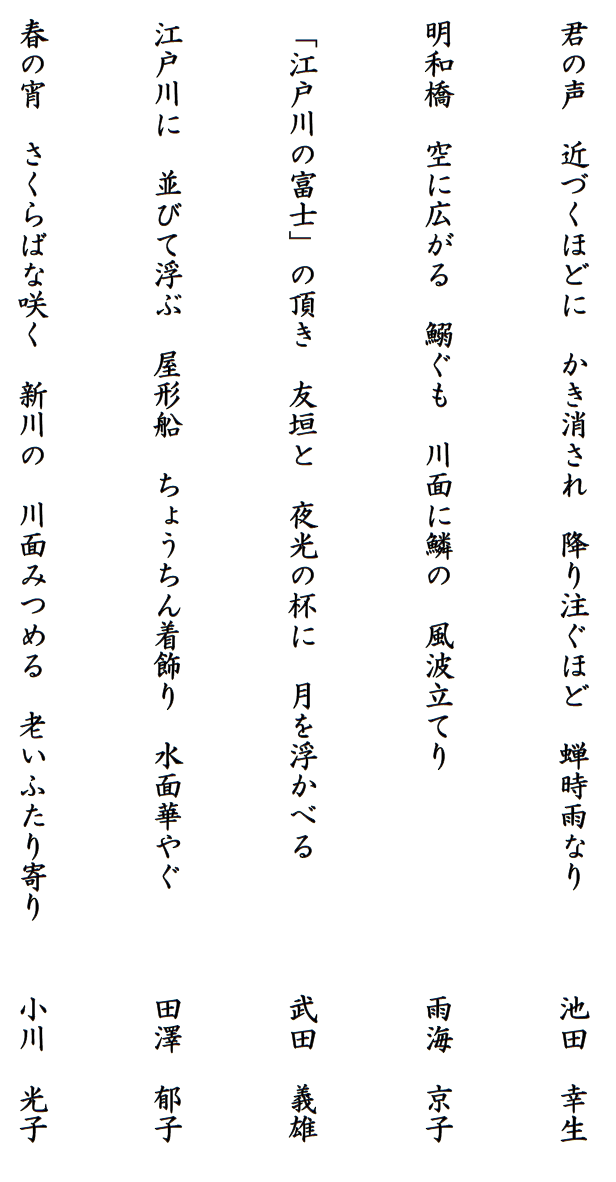 君の声　近づくほどに　かき消され　降り注ぐほど　蝉時雨なり　　池田　幸生
明和橋　空に広がる　鰯ぐも　川面に鱗の　風波立てり　　雨海　京子
「江戸川の富士」の頂き　友垣と　夜光の杯に　月を浮かべる　　武田　義雄
江戸川に　並びて浮ぶ　屋形船　ちょうちん着飾り　水面華やぐ　　田澤　郁子
春の宵　さくらばな咲く　新川の　川面みつめる　老いふたり寄り　　小川　光子